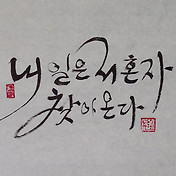 내일은 저 혼자
찾아온다